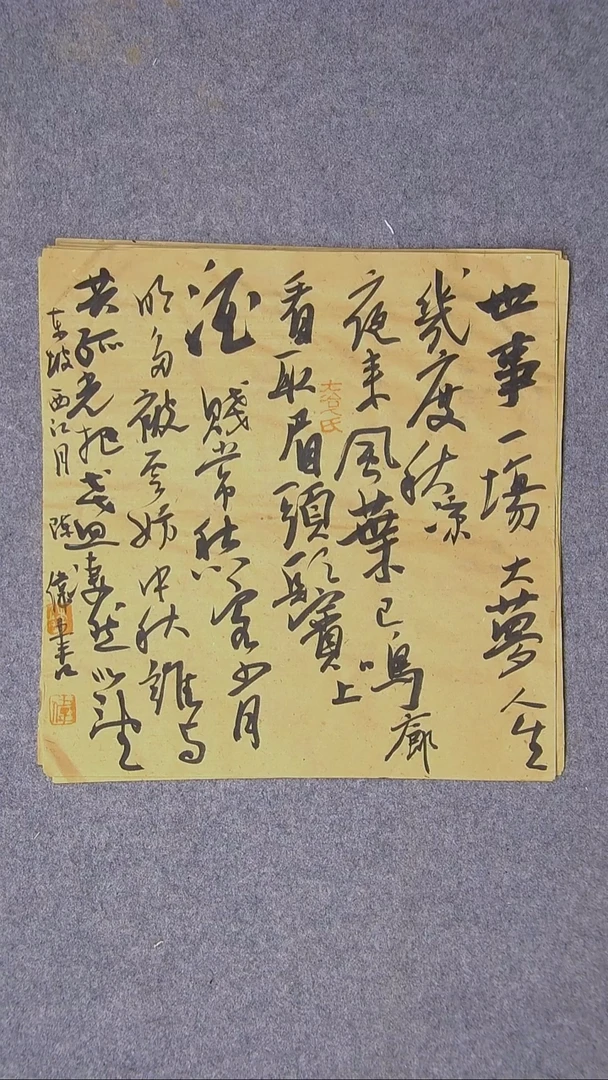 世事一場大夢人生
幾度秋凉
夜来風葉已鳴廊
看取眉頭鬢上
酒賤常愁客少月
明多被云妨中秋誰与
共孤光把盏凄然北望
东坡西江月 陈偉书
偉